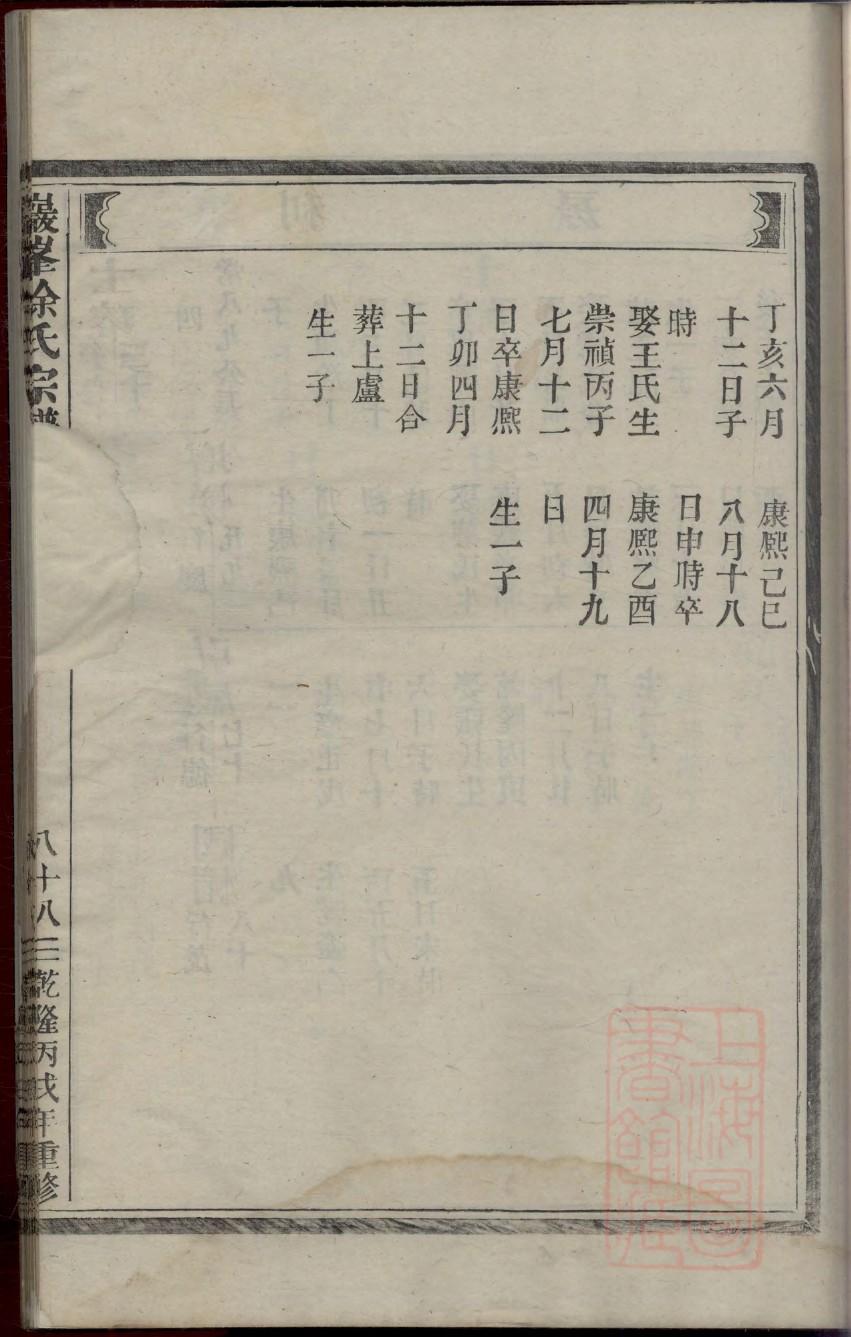 丁亥六月
十二日子
時
娶王氏生
崇禎丙子
七月十二
日卒康熈
丁卯四月
十二日合
葬上盧
生一子
康熈己巳
八月十八
日申時卒
康熈乙酉
四月十九
日
生一子
巖峯徐氏宗譜
八十八
乾隆丙戌年重修
上海圖書館藏